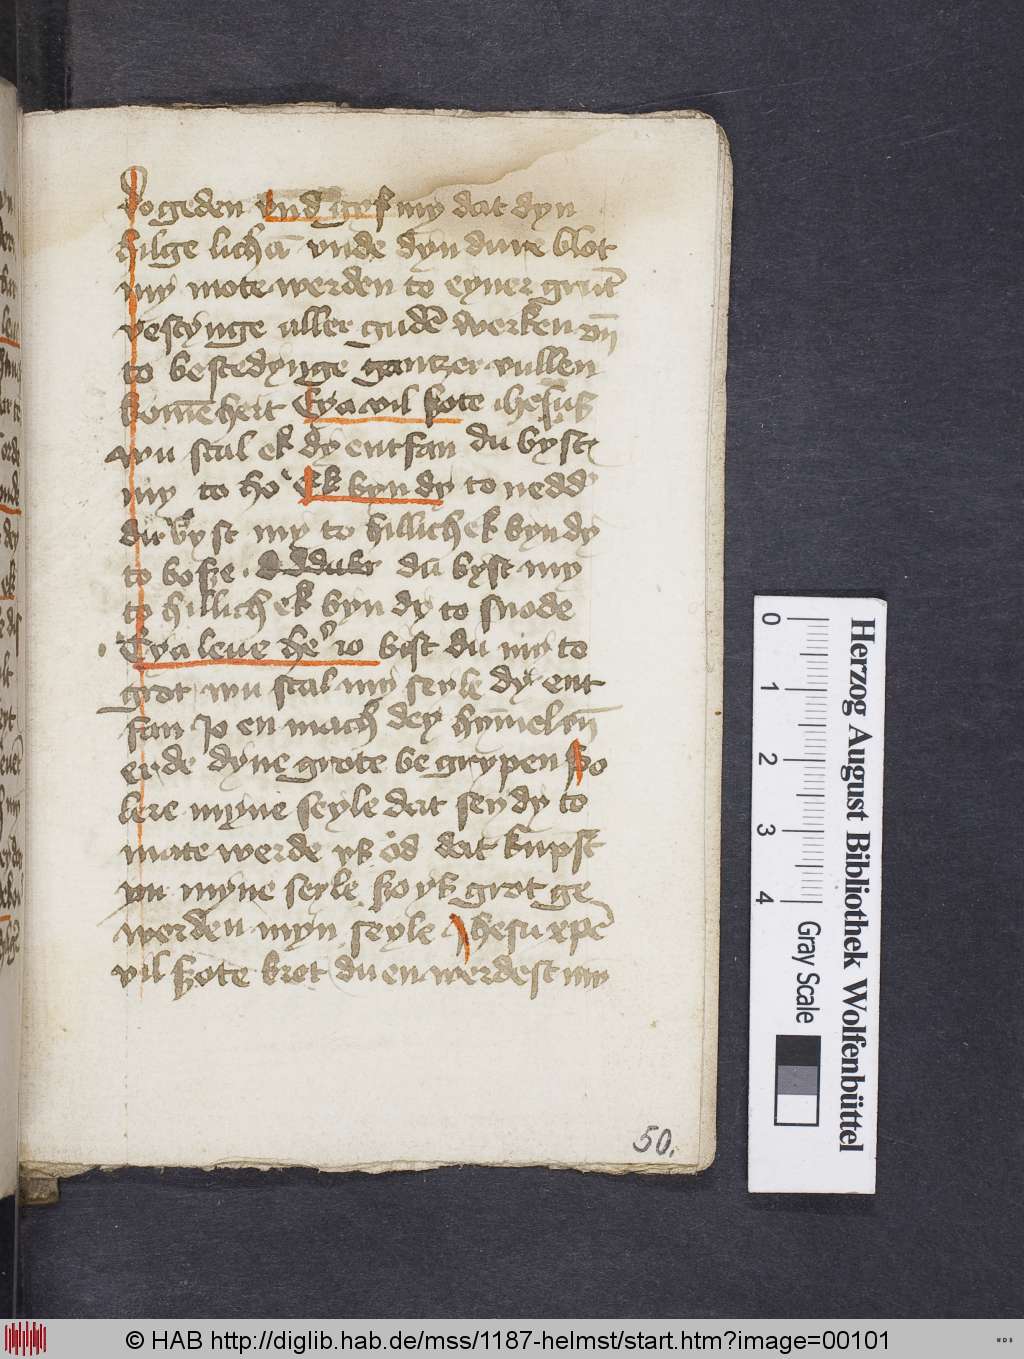 vo geden vnd gef my dat dyn
hilge lichā vnde dyn dure blot
my mote werden to eyner grūt
vestynge aller gudē werken vn̄
to bestedynge gantzer vullen
komēheit Eya wil ßote ihesus
wu scal ek dy entfan du byst
my to ho Ek byn dy to nedd'
du byst my to hillich ek byn dy
to boße du byst my
to hillich ek byn dy to snode
Eya leue he' io bist du my to
grot wu scal my seyle dy ent
fan Jo en mach dey hȳmel vn̄
erde dyne grote be grypen ßo
lere myne seyle dat sey dy to
mate werde yß od dat kupst
yn myne seyle ßo yß grot ge
werden myn seyle Jhesu xpē
vil ßote krot du en werdest my
50.
Herzog August Bibliothek Wolfenbüttel
0 1 2 3 4 Gray Scale
© HAB http://diglib.hab.de/mss/1187-helmst/start.htm?image=00101